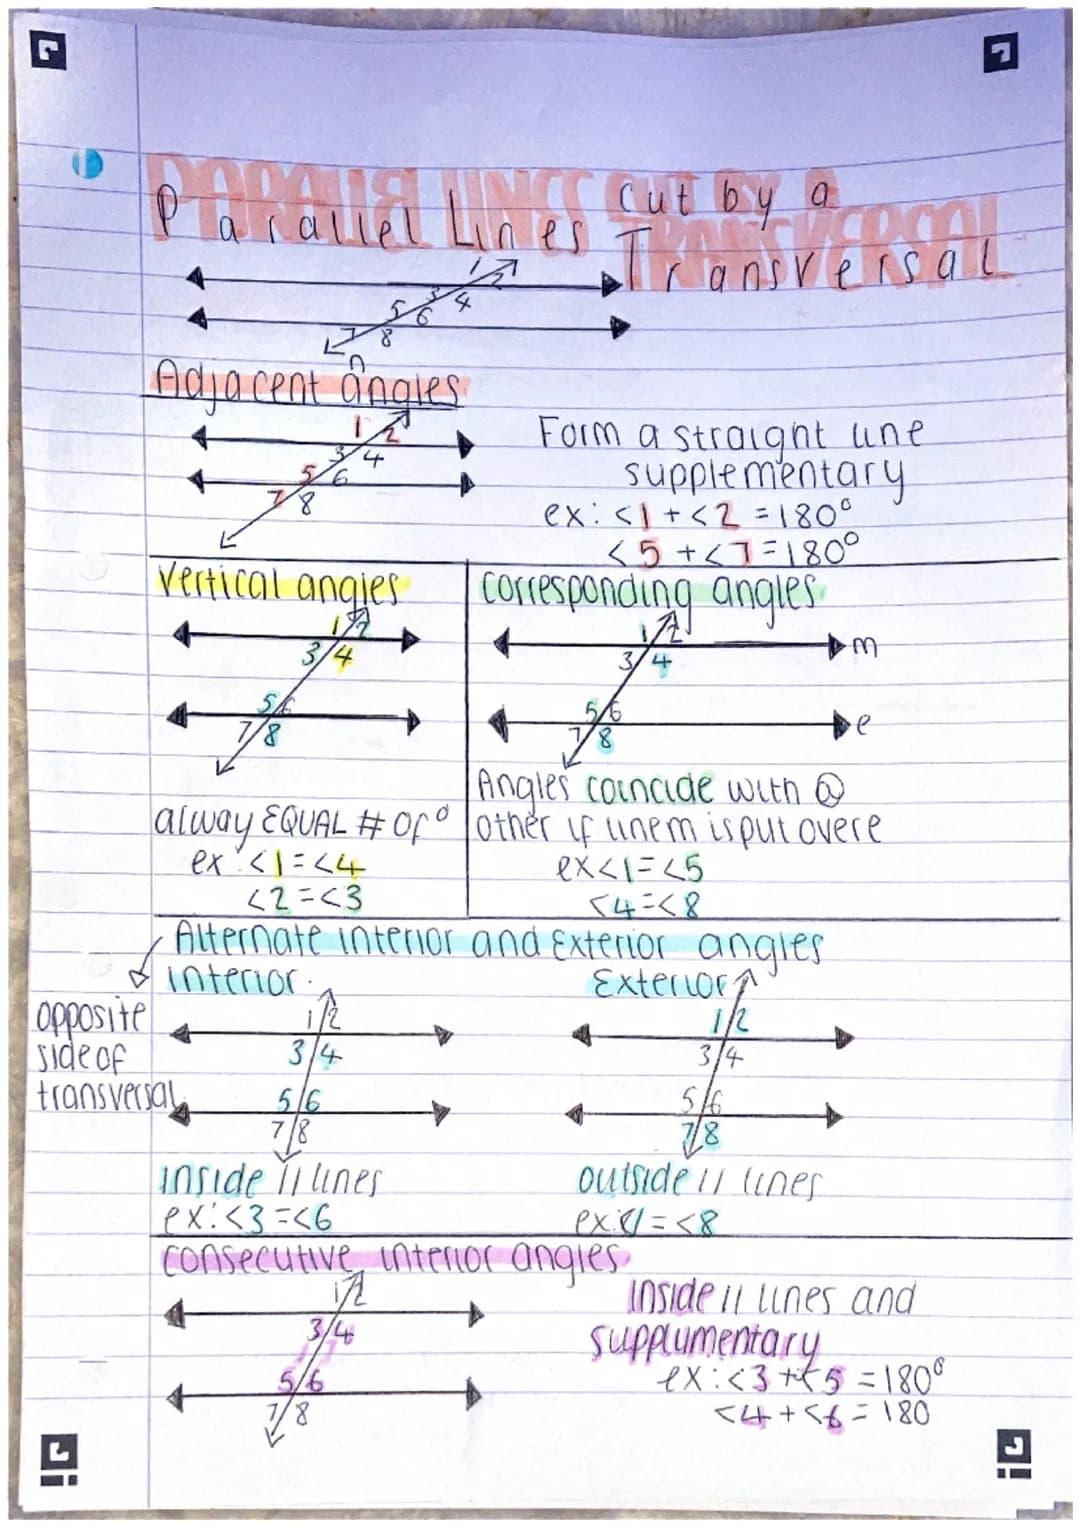 Parallel Lines cut by a Transversal
1 2
3 4
5 6
7 8
Adjacent angles
1 2
3 4
5 6
7 8
Form a straight line
supplementary
ex: <1 + <2 = 180°
<5 + <7 = 180°
Vertical angles
1 2
3 4
5 6
7 8
alway EQUAL # of °
ex: <1 = <4
<2 = <3
corresponding angles
1 2
m
3 4
5 6
e
7 8
Angles coincide with @
other if line m is put over e
ex <1 = <5
<4 = <8
Alternate interior and Exterior angles
opposite
side of
transversal
interior
1 2
3 4
5 6
7 8
inside // lines
ex: <3 = <6
Exterior
1 2
3 4
5 6
7 8
outside // lines
ex: <1 = <8
consecutive interior angles
1 2
3 4
5 6
7 8
Inside // lines and
supplumentary
ex: <3 + <5 = 180°
<4 + <6 = 180